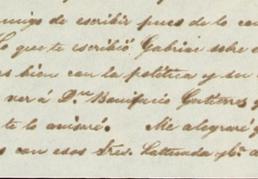 amigo de escribir pues de lo con
Lo que te escribió Gabriac sobre e
as bien con la política y su
ver á Dn Bonifacio Gutierrez y
te lo avisaré. Me alegraré
s con esos Sres. Lattenada y Ca. a